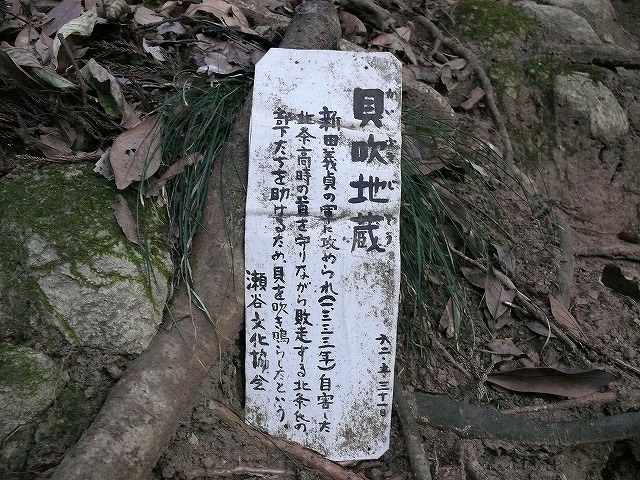 貝吹地蔵
かいふきじぞう
新田義貞の軍に攻められ(一三三三年)自害した
北条高時の首を守りながら敗走する北条氏の
部下たちを助けるため、貝を吹き鳴らしたという。
瀬谷文化協会